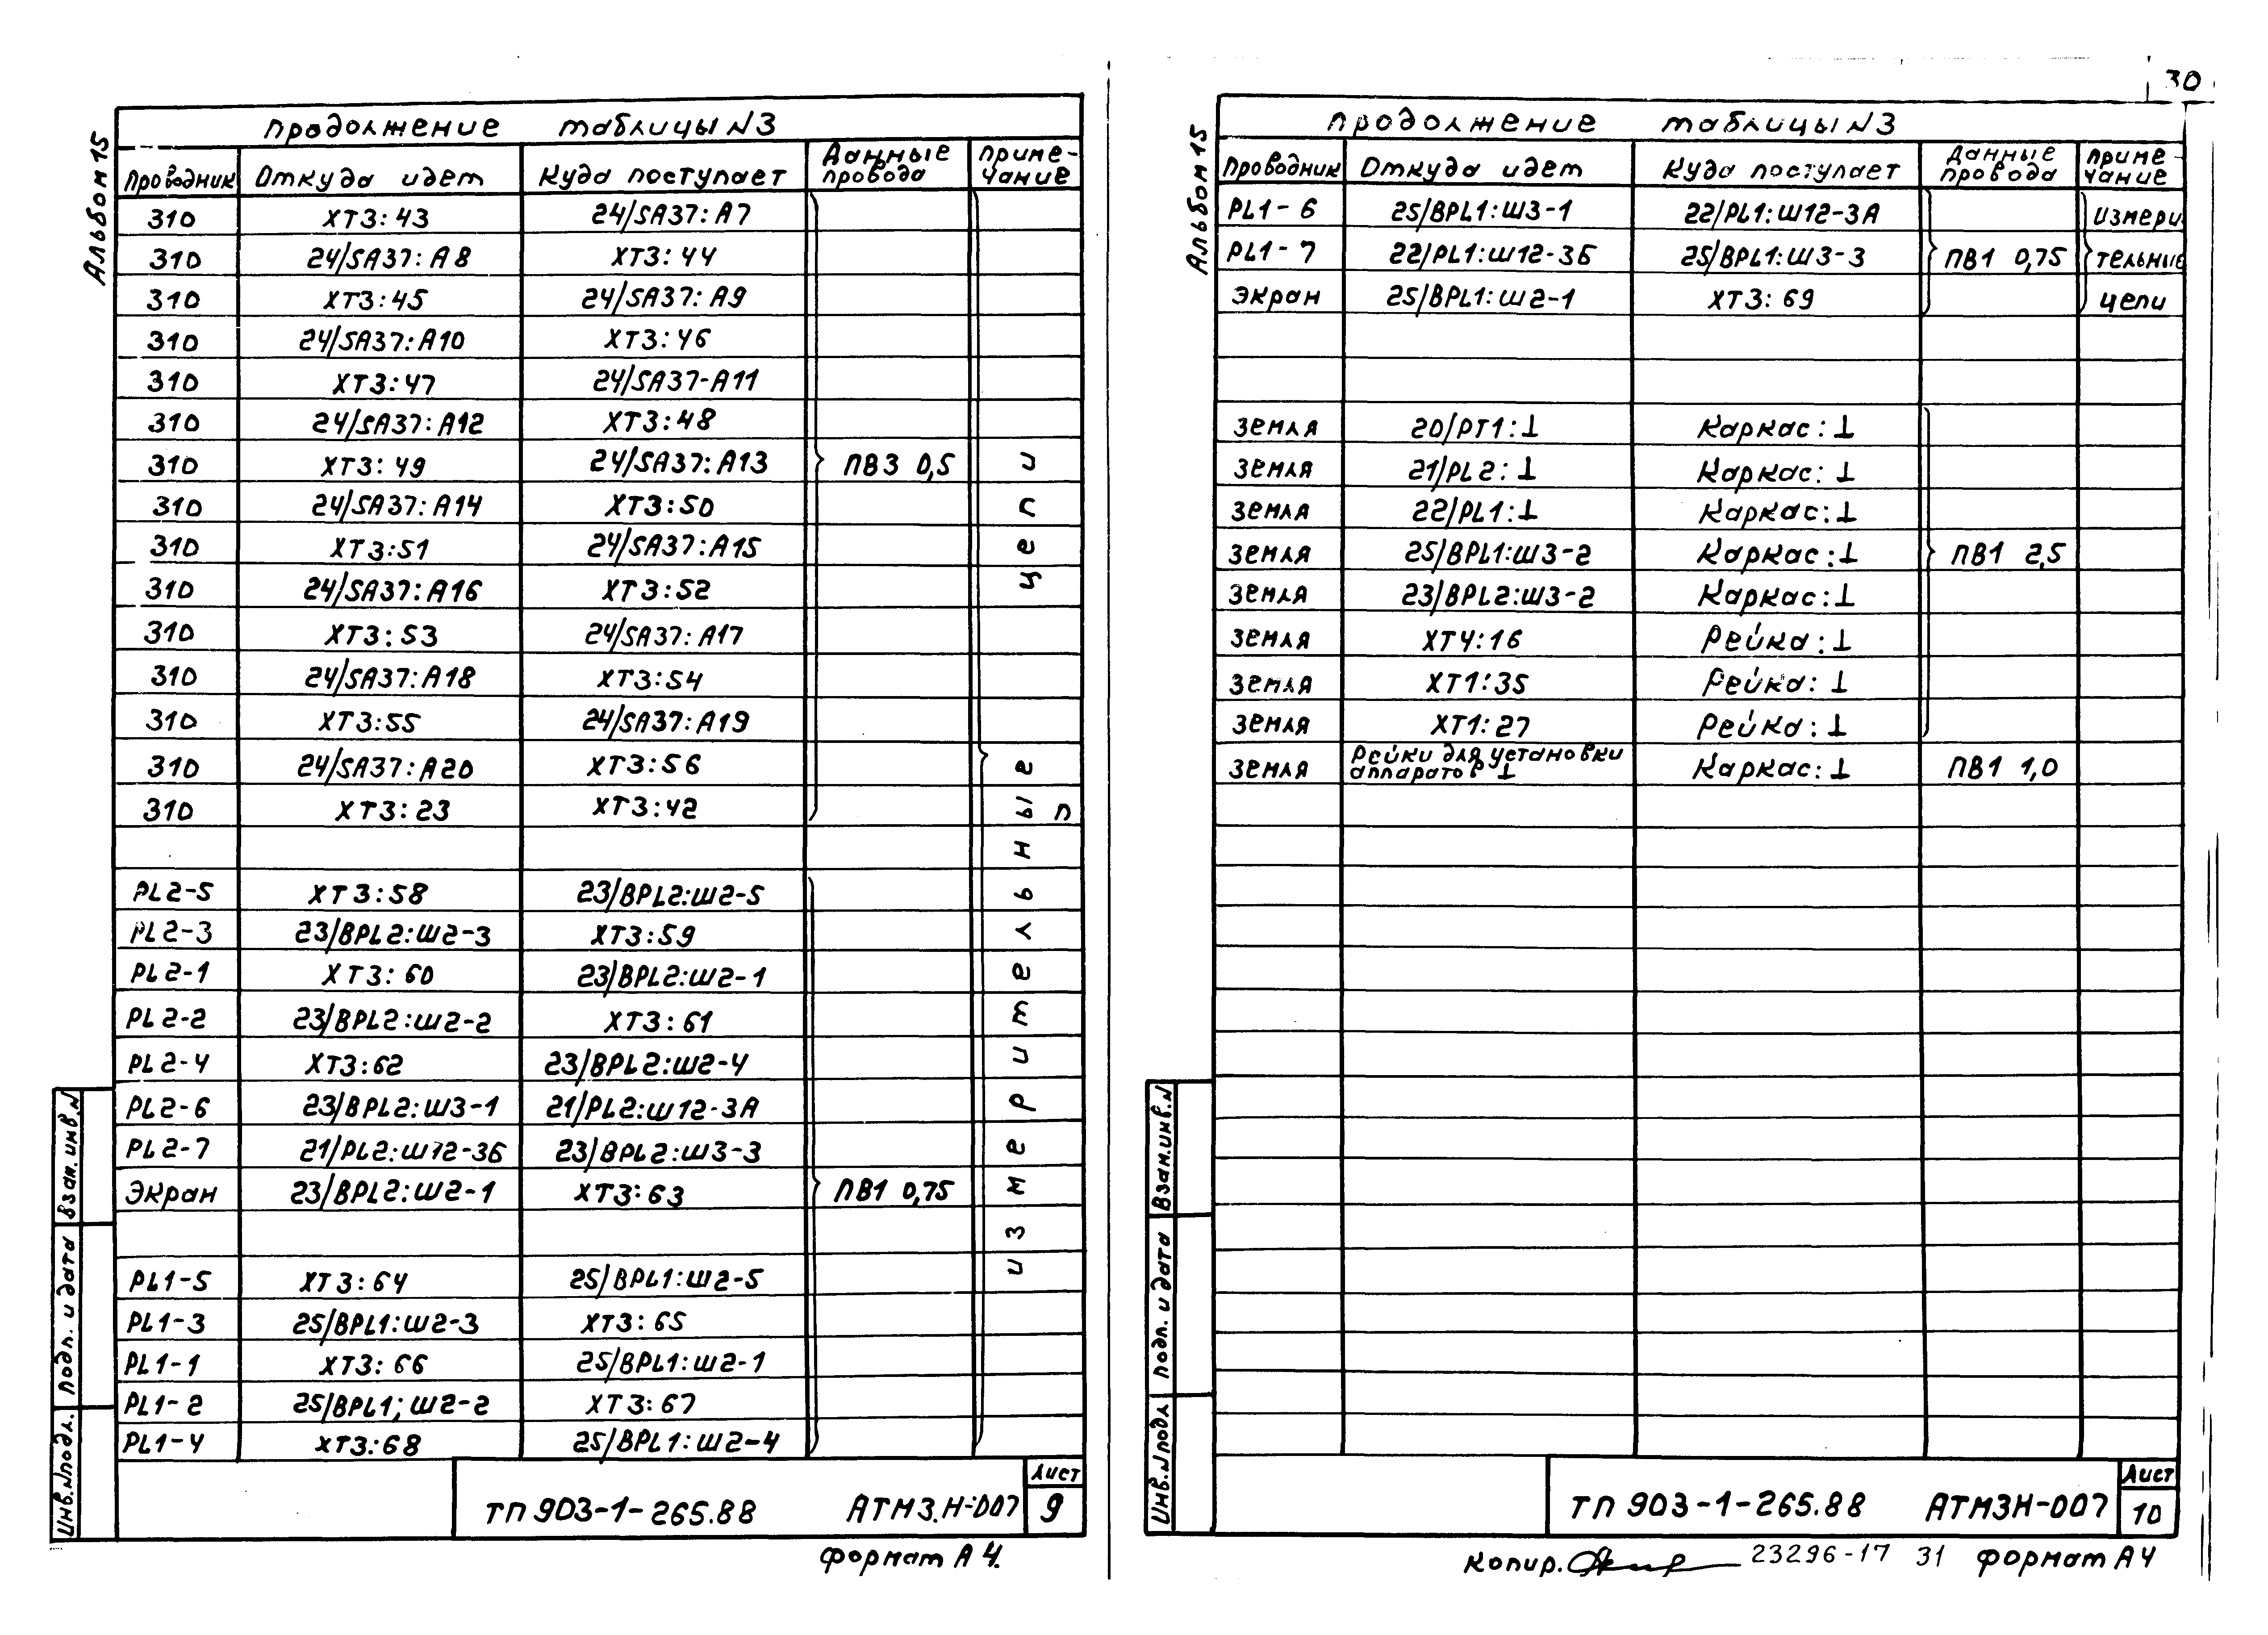 Альбом 15
продолжение таблицы N3
Проводник Откуда идет Куда поступает Данные провода Приме-чание
310 XT3:43 24/SA37:A7
310 24/SA37:A8 XT3:44
310 XT3:45 24/SA37:A9
310 24/SA37:A10 XT3:46
310 XT3:47 24/SA37-A11
310 24/SA37:A12 XT3:48
310 XT3:49 24/SA37:A13 ПВ3 0,5
310 24/SA37:A14 XT3:50
310 XT3:51 24/SA37:A15
310 24/SA37:A16 XT3:52
310 XT3:53 24/SA37:A17
310 24/SA37:A18 XT3:54
310 XT3:55 24/SA37:A19
310 24/SA37:A20 XT3:56
310 XT3:23 XT3:42 п
PL2-5 XT3:58 23/BPL2:Ш2-5
PL2-3 23/BPL2:Ш2-3 XT3:59
PL2-1 XT3:60 23/BPL2:Ш2-1
PL2-2 23/BPL2:Ш2-2 XT3:61
PL2-4 XT3:62 23/BPL2:Ш2-4
PL2-6 23/BPL2:Ш3-1 21/PL2:Ш12-3А
PL2-7 21/PL2:Ш12-3Б 23/BPL2:Ш3-3
Экран 23/BPL2:Ш2-1 XT3:63 ПВ1 0,75
PL1-5 XT3:64 25/BPL1:Ш2-5
PL1-3 25/BPL1:Ш2-3 XT3:65
PL1-1 XT3:66 25/BPL1:Ш2-1
PL1-2 25/BPL1;Ш2-2 XT3:67
PL1-4 XT3:68 25/BPL1:Ш2-4
измерительные цепи
Взам.инв.N
Подп. и дата
Инв.Nподл.
ТП 903-1-265.88 АТМ3.Н-007 Лист 9
формат А4.
30
Альбом 15
продолжение таблицы N3
Проводник Откуда идет Куда поступает Данные провода Приме-чание
PL1-6 25/BPL1:Ш3-1 22/PL1:Ш12-3А измери
PL1-7 22/PL1:Ш12-3Б 25/BPL1:Ш3-3 ПВ1 0,75 тельные
Экран 25/BPL1:Ш2-1 XT3:69 цепи
земля 20/РТ1:⊥ Каркас:⊥
земля 21/PL2:⊥ Каркас:⊥
земля 22/PL1:⊥ Каркас:⊥
земля 25/BPL1:Ш3-2 Каркас:⊥ ПВ1 2,5
земля 23/BPL2:Ш3-2 Каркас:⊥
земля XT4:16 Рейка:⊥
земля XT1:35 Рейка:⊥
земля XT1:27 Рейка:⊥
земля Рейки для установки аппаратов ⊥ Каркас:⊥ ПВ1 1,0
Взам.инв.N
Подп. и дата
Инв.Nподл
ТП 903-1-265.88 АТМ3Н-007 Лист 10
копир. 23296-17 31 формат А4